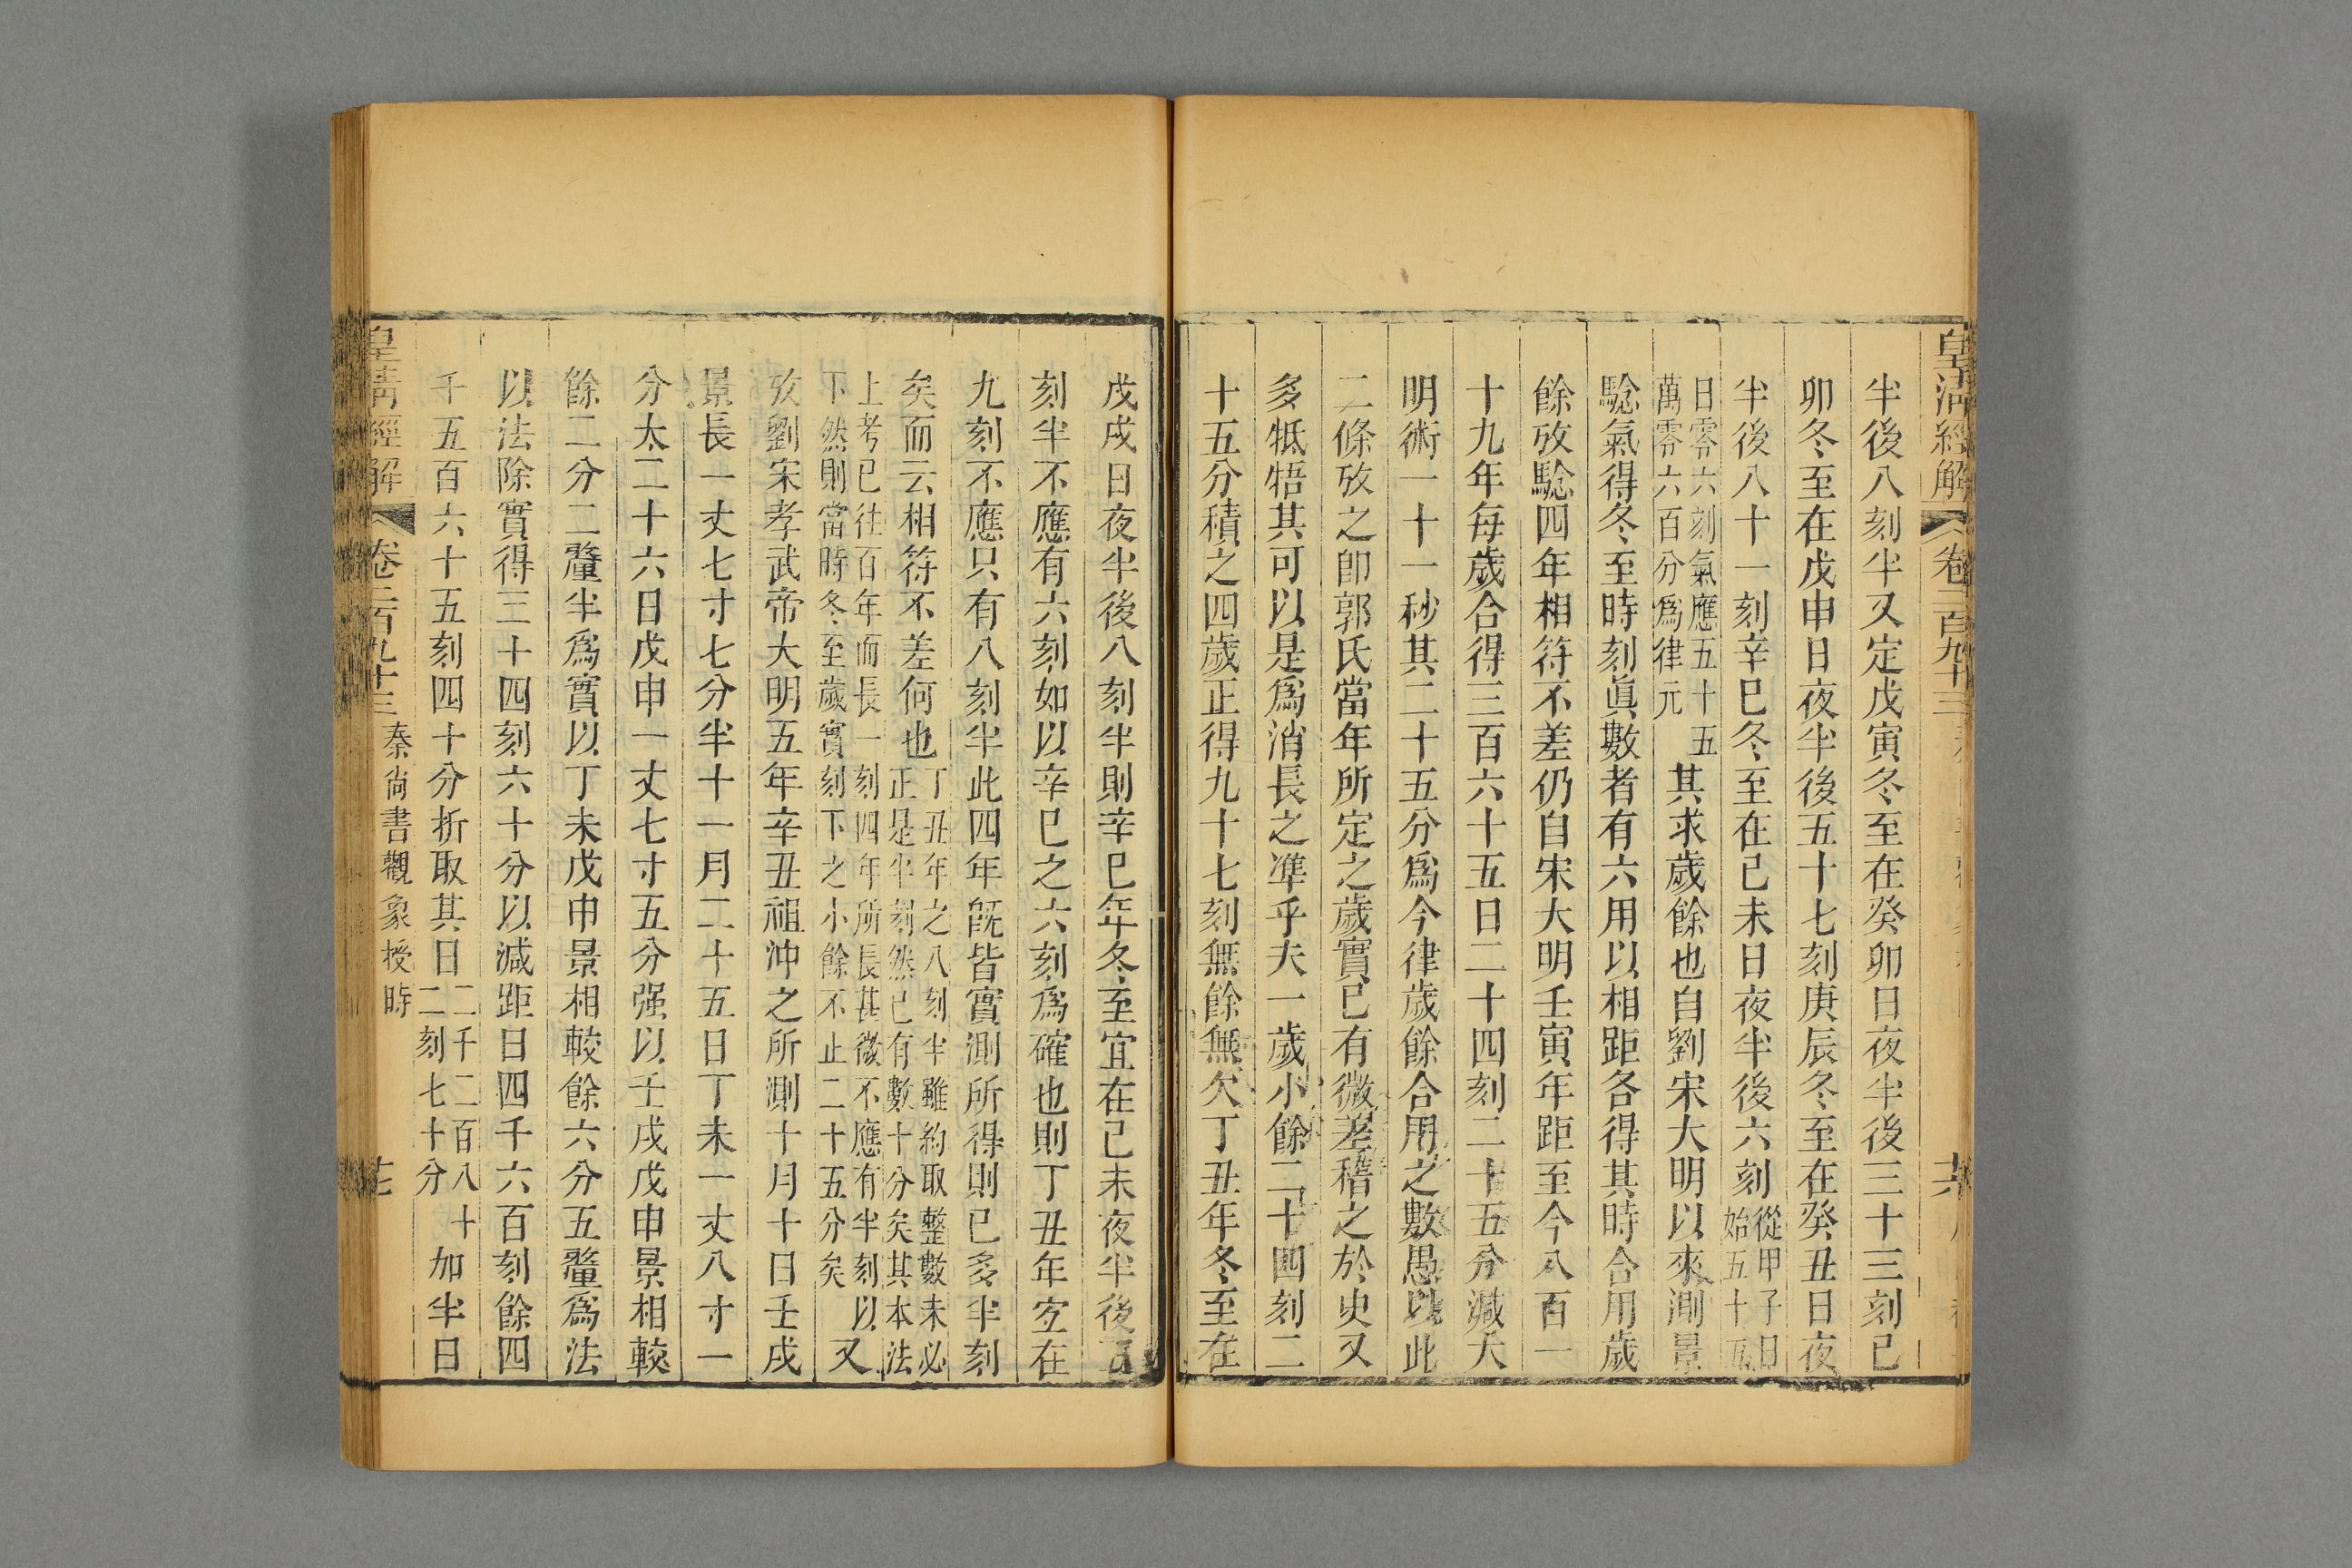 皇清經解
卷二百九十三
半後八刻半又定戊寅冬至在癸卯日夜半後三十三刻已
卯冬至在戊申日夜半後五十七刻庚辰冬至在癸丑日夜
半後八十一刻辛巳冬至在己未日夜半後六刻從甲子日始五十五
日零六刻氣應五十五萬零六百分爲律元其求歲餘也自劉宋大明以來測景
騐氣得冬至時刻眞數者有六用以相距各得其時合用歲
餘攷騐四年相符不差仍自宋大明壬寅年距至今八百一
十九年每歲合得三百六十五日二十四刻二十五分減大
明術一十一秒其二十五分爲今律歲餘合用之數愚以此
二條攷之卽郭氏當年所定之歲實已有微差稽之於史又
多牴牾其可以是爲消長之準乎夫一歲小餘二十四刻二
十五分積之四歲正得九十七刻無餘無欠丁丑年冬至在
戊戌日夜半後八刻半則辛巳年冬至宜在己未夜半後五
刻半不應有六刻如以辛巳之六刻爲確也則丁丑年冝在
九刻不應只有八刻半此四年旣皆實測所得則已多半刻
矣而云相符不差何也丁丑年之八刻半雖約取整數未必正是半刻然已有數十分矣其本法
上考已往百年而長一刻四年所長甚微不應有半刻以下然則當時冬至歲實刻下之小餘不止二十五分矣又
攷劉宋孝武帝大明五年辛丑祖沖之所測十月十日壬戌
景長一丈七寸七分半十一月二十五日丁未一丈八寸一
分太二十六日戊申一丈七寸五分强以壬戌戊申景相較
餘二分二釐半爲實以丁未戊申景相較餘六分五釐爲法
以法除實得三十四刻六十分以減距日四千六百刻餘四
千五百六十五刻四十分折取其日二千二百八十二刻七十分加半日
皇清經解
卷二百九十三
秦尚書觀象授時